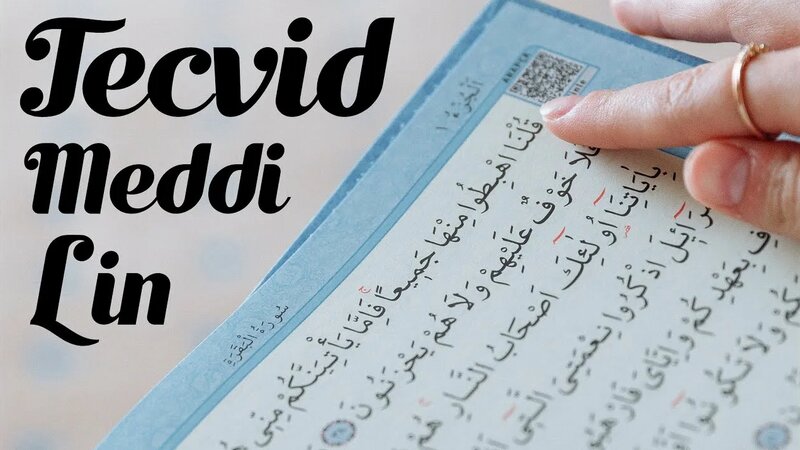 Tecvid
Meddi
Lin
اَلْجُزْءُ ١
سُورَةُ الْبَقَرَةِ
قُلْنَا اهْبِطُوا مِنْهَا جَمِيعًا فَاِمَّا يَأْتِيَنَّكُمْ مِنِّي
فَلَا خَوْفٌ عَلَيْهِمْ وَلَا هُمْ يَحْزَنُونَ
بِاٰيَاتِنَا اُولٰٓئِكَ اَصْحَابُ النَّارِ هُمْ
اذْكُرُوا نِعْمَتِيَ الَّتِٓي
بِعَهْدِكُمْ وَاِيَّايَ
وَلَا تَكُونُٓوا